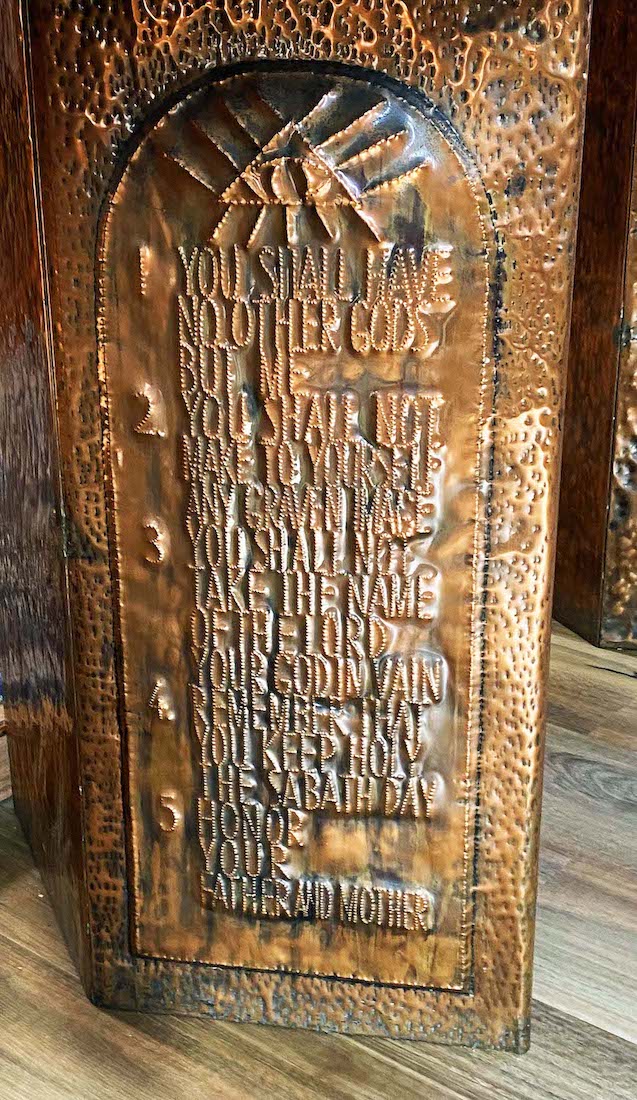 1 YOU SHALL HAVE
NO OTHER GODS
BUT ME
2. YOU SHALL NOT
MAKE TO YOURSELF
ANY GRAVEN IMAGE
3 YOU SHALL NOT
TAKE THE NAME
OF THE LORD
YOUR GOD IN VAIN
4. REMEMBER THAT
YOU KEEP HOLY
THE SABATH DAY
5 HONOR
YOUR
FATHER AND MOTHER